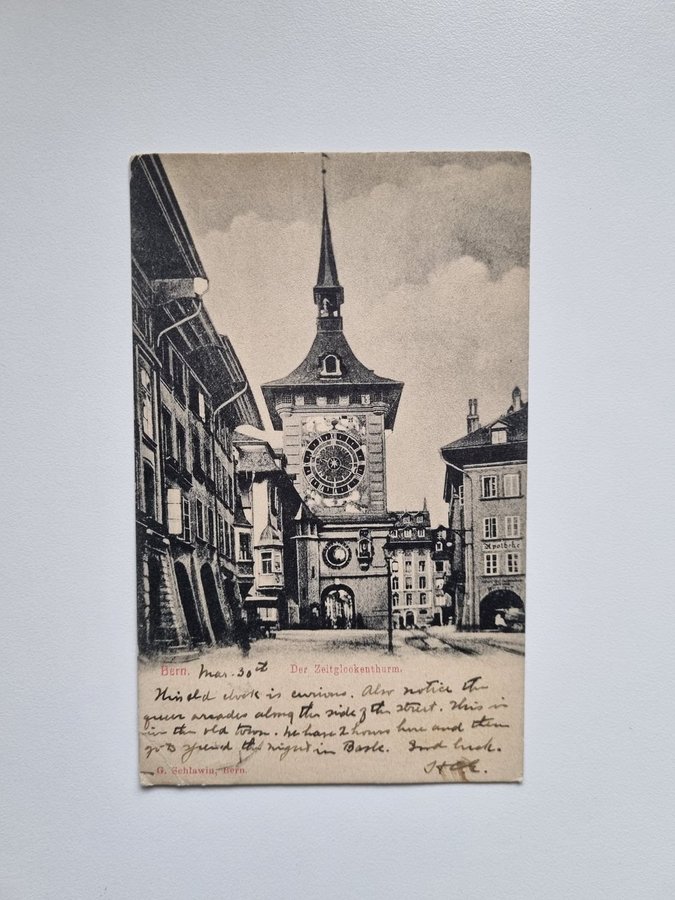 Apotheke
Bern. Mar. 30th Der Zeitglockenthurm.
This old clock is curious. Also notice the
queer arcades along the side of the street. This is
in the old town. We have 2 hours here and then
go to spend the night in Basle. Good luck.
G. Schlawin, Bern.